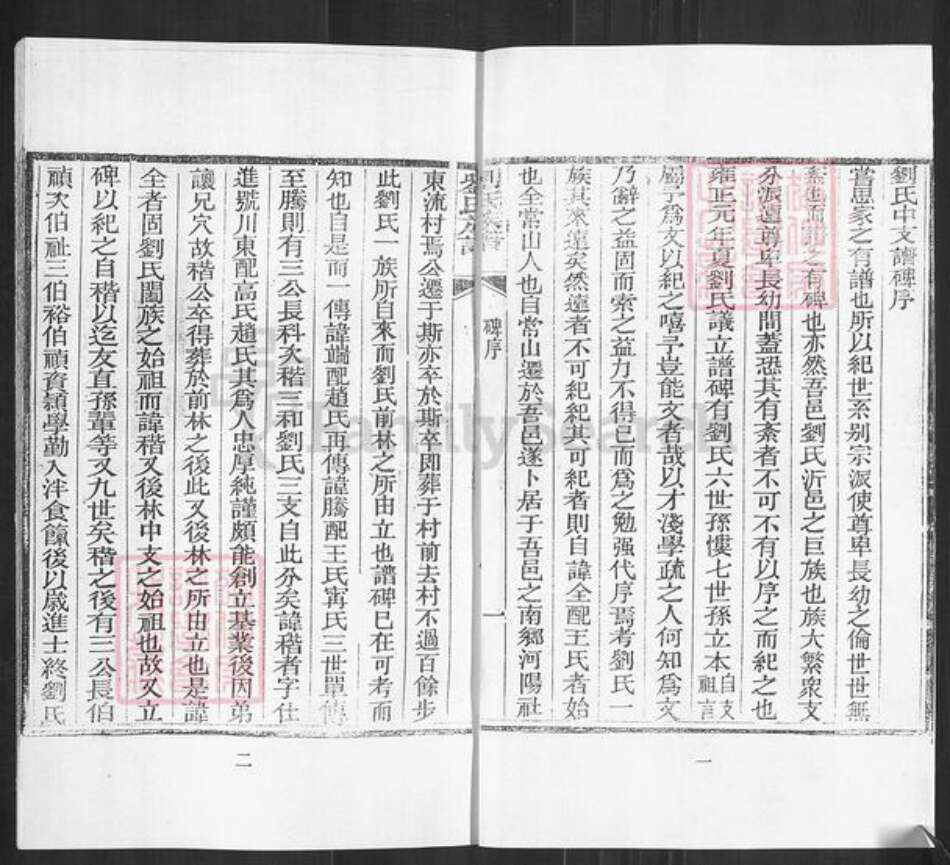 劉氏中支譜碑序
嘗思家之有譜也所以紀世系别宗派使尊卑長幼之倫世世無
紊也而譜之有碑也亦然吾邑劉氏沂邑之巨族也族大繁衆支
分派遠尊卑長幼間蓋恐其有紊者不可不有以序之而紀之也
雍正元年夏劉氏議立譜碑有劉氏六世孫慺七世孫立本自支祖言
屬予爲文以紀之嘻予豈能文者哉以才淺學疏之人何知爲文
乃辭之益固而索之益力不得已而爲之勉强代序焉考劉氏一
族其來遠矣然遠者不可紀紀其可紀者則自諱全配王氏者始
也全常山人也自常山遷於吾邑遂卜居于吾邑之南鄉河陽社
劉氏族譜
碑序
一
東流村焉公遷于斯亦卒於斯卒即葬于村前去村不過百餘步
此劉氏一族所自來而劉氏前林之所由立也譜碑已在可考而
知也自是而一傳諱端配趙氏再傳諱騰配王氏甯氏三世單傳
至騰則有三公長科次稭三和劉氏三支自此分矣諱稭者字仕
進號川東配高氏趙氏其爲人忠厚純謹頗能創立基業後因弟
讓兄穴故稭公卒得葬於前林之後此又後林之所由立也是諱
全者固劉氏闔族之始祖而諱稭又後林中支之始祖也故又立
碑以紀之自稭以迄友直孫輩等又九世矣稭之後有三公長伯
禎次伯祉三伯裕伯禎資頴學勤入泮食餼後以歳進士終劉氏
一
二
FamilySearch